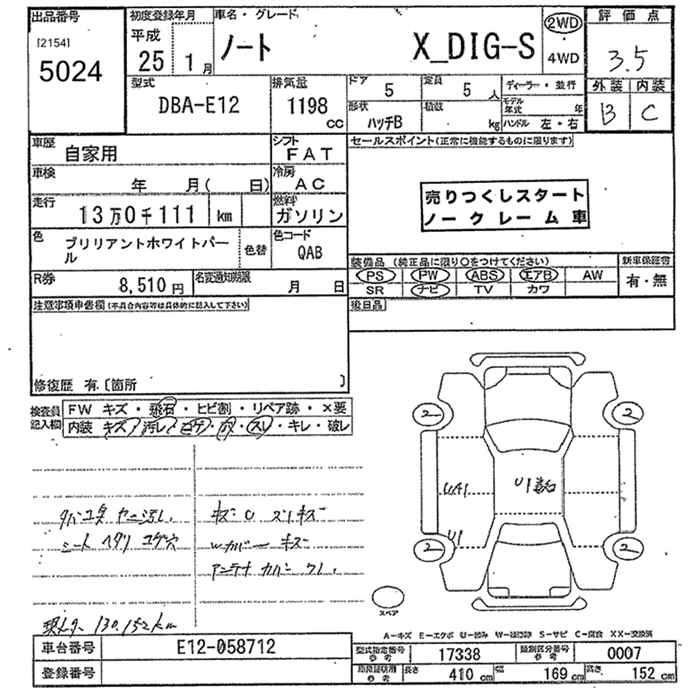 出品番号
[2154]
5024
初度登録年月
平成
25 1月
車名・グレード
ノート X_DIG-S
2WD
4WD
評価点
3.5
外装 内装
B C
型式
DBA-E12
排気量
1198
cc
ドア
5
定員
5 人
ディーラー・並行
形状
ハッチB
積数
kg
モデル年式 年
ハンドル 左・右
車歴
自家用
シフト
FAT
セールスポイント(正常に機能するものに限ります)
車検
年 月( 日)
冷房
AC
走行
13万0千111 km
燃料
ガソリン
売りつくしスタート
ノークレーム車
色
ブリリアントホワイトパール
色替
色コード
QAB
R券
8,510円
名変通知期限
月 日
装備品 (純正品に限り○をつけてください)
新車保証書
PS PW ABS エアB AW
SR ナビ TV カワ
有・無
注意事項申告欄(不具合内容等は具体的に記入して下さい)
後日品
修復歴 有〔箇所 〕
検査員記入欄
FW キズ・飛石・ヒビ割・リペア跡・×要
内装 キズ・汚レ・コゲ・穴・スレ・キレ・破レ
2 2
UA1
U1
2 2
キズ U スリキズ
シート ヘタリ コゲ穴
Wカバー キズ
アンテナカバー ワレ.
130,152km
スペア
A-キズ E-エクボ U-凹み W-補修跡 S-サビ C-腐食 XX-交換済
車台番号
E12-058712
型式指定番号
参考
17338
類別区分番号
参考
0007
登録番号
参考
長さ
410 cm
幅
169 cm
高さ
152 cm